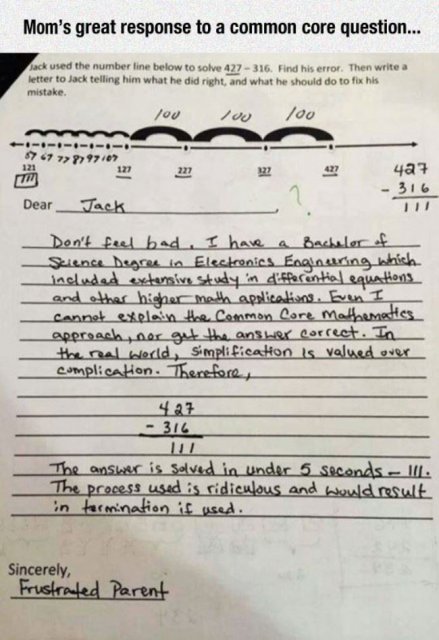 Mom's great response to a common core question...
Jack used the number line below to solve 427 – 316. Find his error. Then write a
letter to Jack telling him what he did right, and what he should do to fix his
mistake.
100 100 100
57 67 77 87 97 107
121 127 227 327 427
111
427
- 316
111
?
Dear Jack,
Don't feel bad. I have a Bachelor of
Science Degree in Electronics Engineering which
included extensive study in differential equations
and other higher math applications. Even I
cannot explain the Common Core Mathematics
approach, nor get the answer correct. In
the real world, simplification is valued over
complication. Therefore,
427
- 316
111
The answer is solved in under 5 seconds – 111.
The process used is ridiculous and would result
in termination if used.
Sincerely,
Frustrated Parent